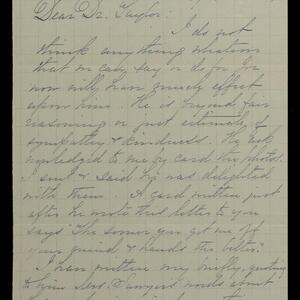 Dear Dr. Taylor:
I do not
think anything whatever
that we can say or do for
now will have much effect
upon him. He is beyond fair
reasoning or just estimate of
sympathy & kindness. He
by card the photos
I sent & said he was delighted
with them. A card written just
after he wrote this letter to you
says "The sooner you get me off
your mind & hands the better."
I have written him briefly, quoting
Mrs. Sawyers words about